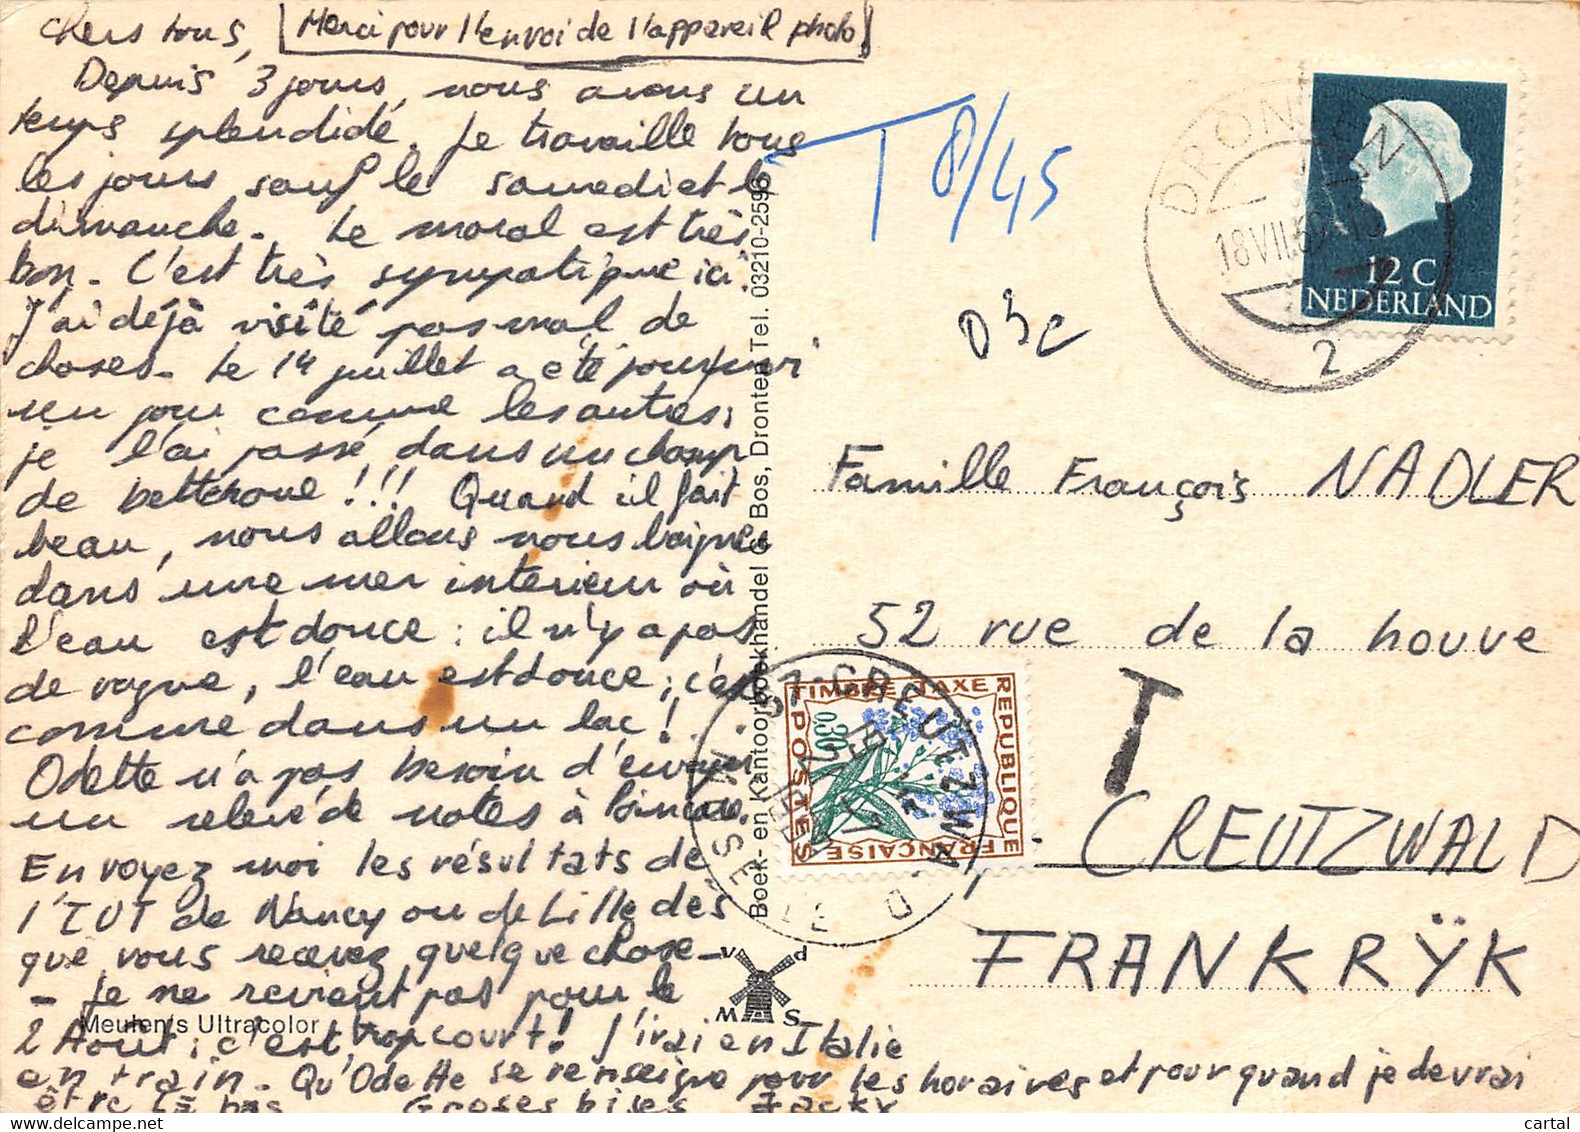 Chers tous, [Merci pour l'envoi de l'appareil photo]
Depuis 3 jours, nous avons un
temps splendidé. Je travaille tous
les jours sauf le samedi et le
dimanche. Le moral est très
bon. C'est très sympatique ici.
J'ai déjà visité pas mal de
choses. Le 14 juillet a été pour moi
un jour comme les autres;
je l'ai passé dans un champ
de betterave !!! Quand il fait
beau, nous allons nous baigner
dans une mer interieur où
l'eau est douce : il n'y a pas
de vague, l'eau est douce ; c'est
comme dans un lac !
Odette n'a pas besoin d'envoyer
un relevé de notes à Poincaré.
Envoyez moi les résultats de
l'IUT de Nancy ou de Lille dès
que vous recevez quelque chose -
- Je ne revient pas pour le
2 Août ; c'est trop court ! J'irai en Italie
en train. Qu'Odette se renseigne pour les horaires et pour quand je devrai
être là bas Grosses bises Jacky
Meulen's Ultracolor
Boek- en Kantoorboekhandel G. Bos, Dronten Tel. 03210-2596
v d
p
W S
T 8/45
DRONTEN
18 VII
2
12 C
NEDERLAND
Famille François NADLER
52 rue de la houve
T
CREUTZWALD
FRANKRŸK
TIMBRE TAXE
REPUBLIQUE
FRANÇAISE
POSTES
0,30
CREUTZWALD
MOSELLE
cartal